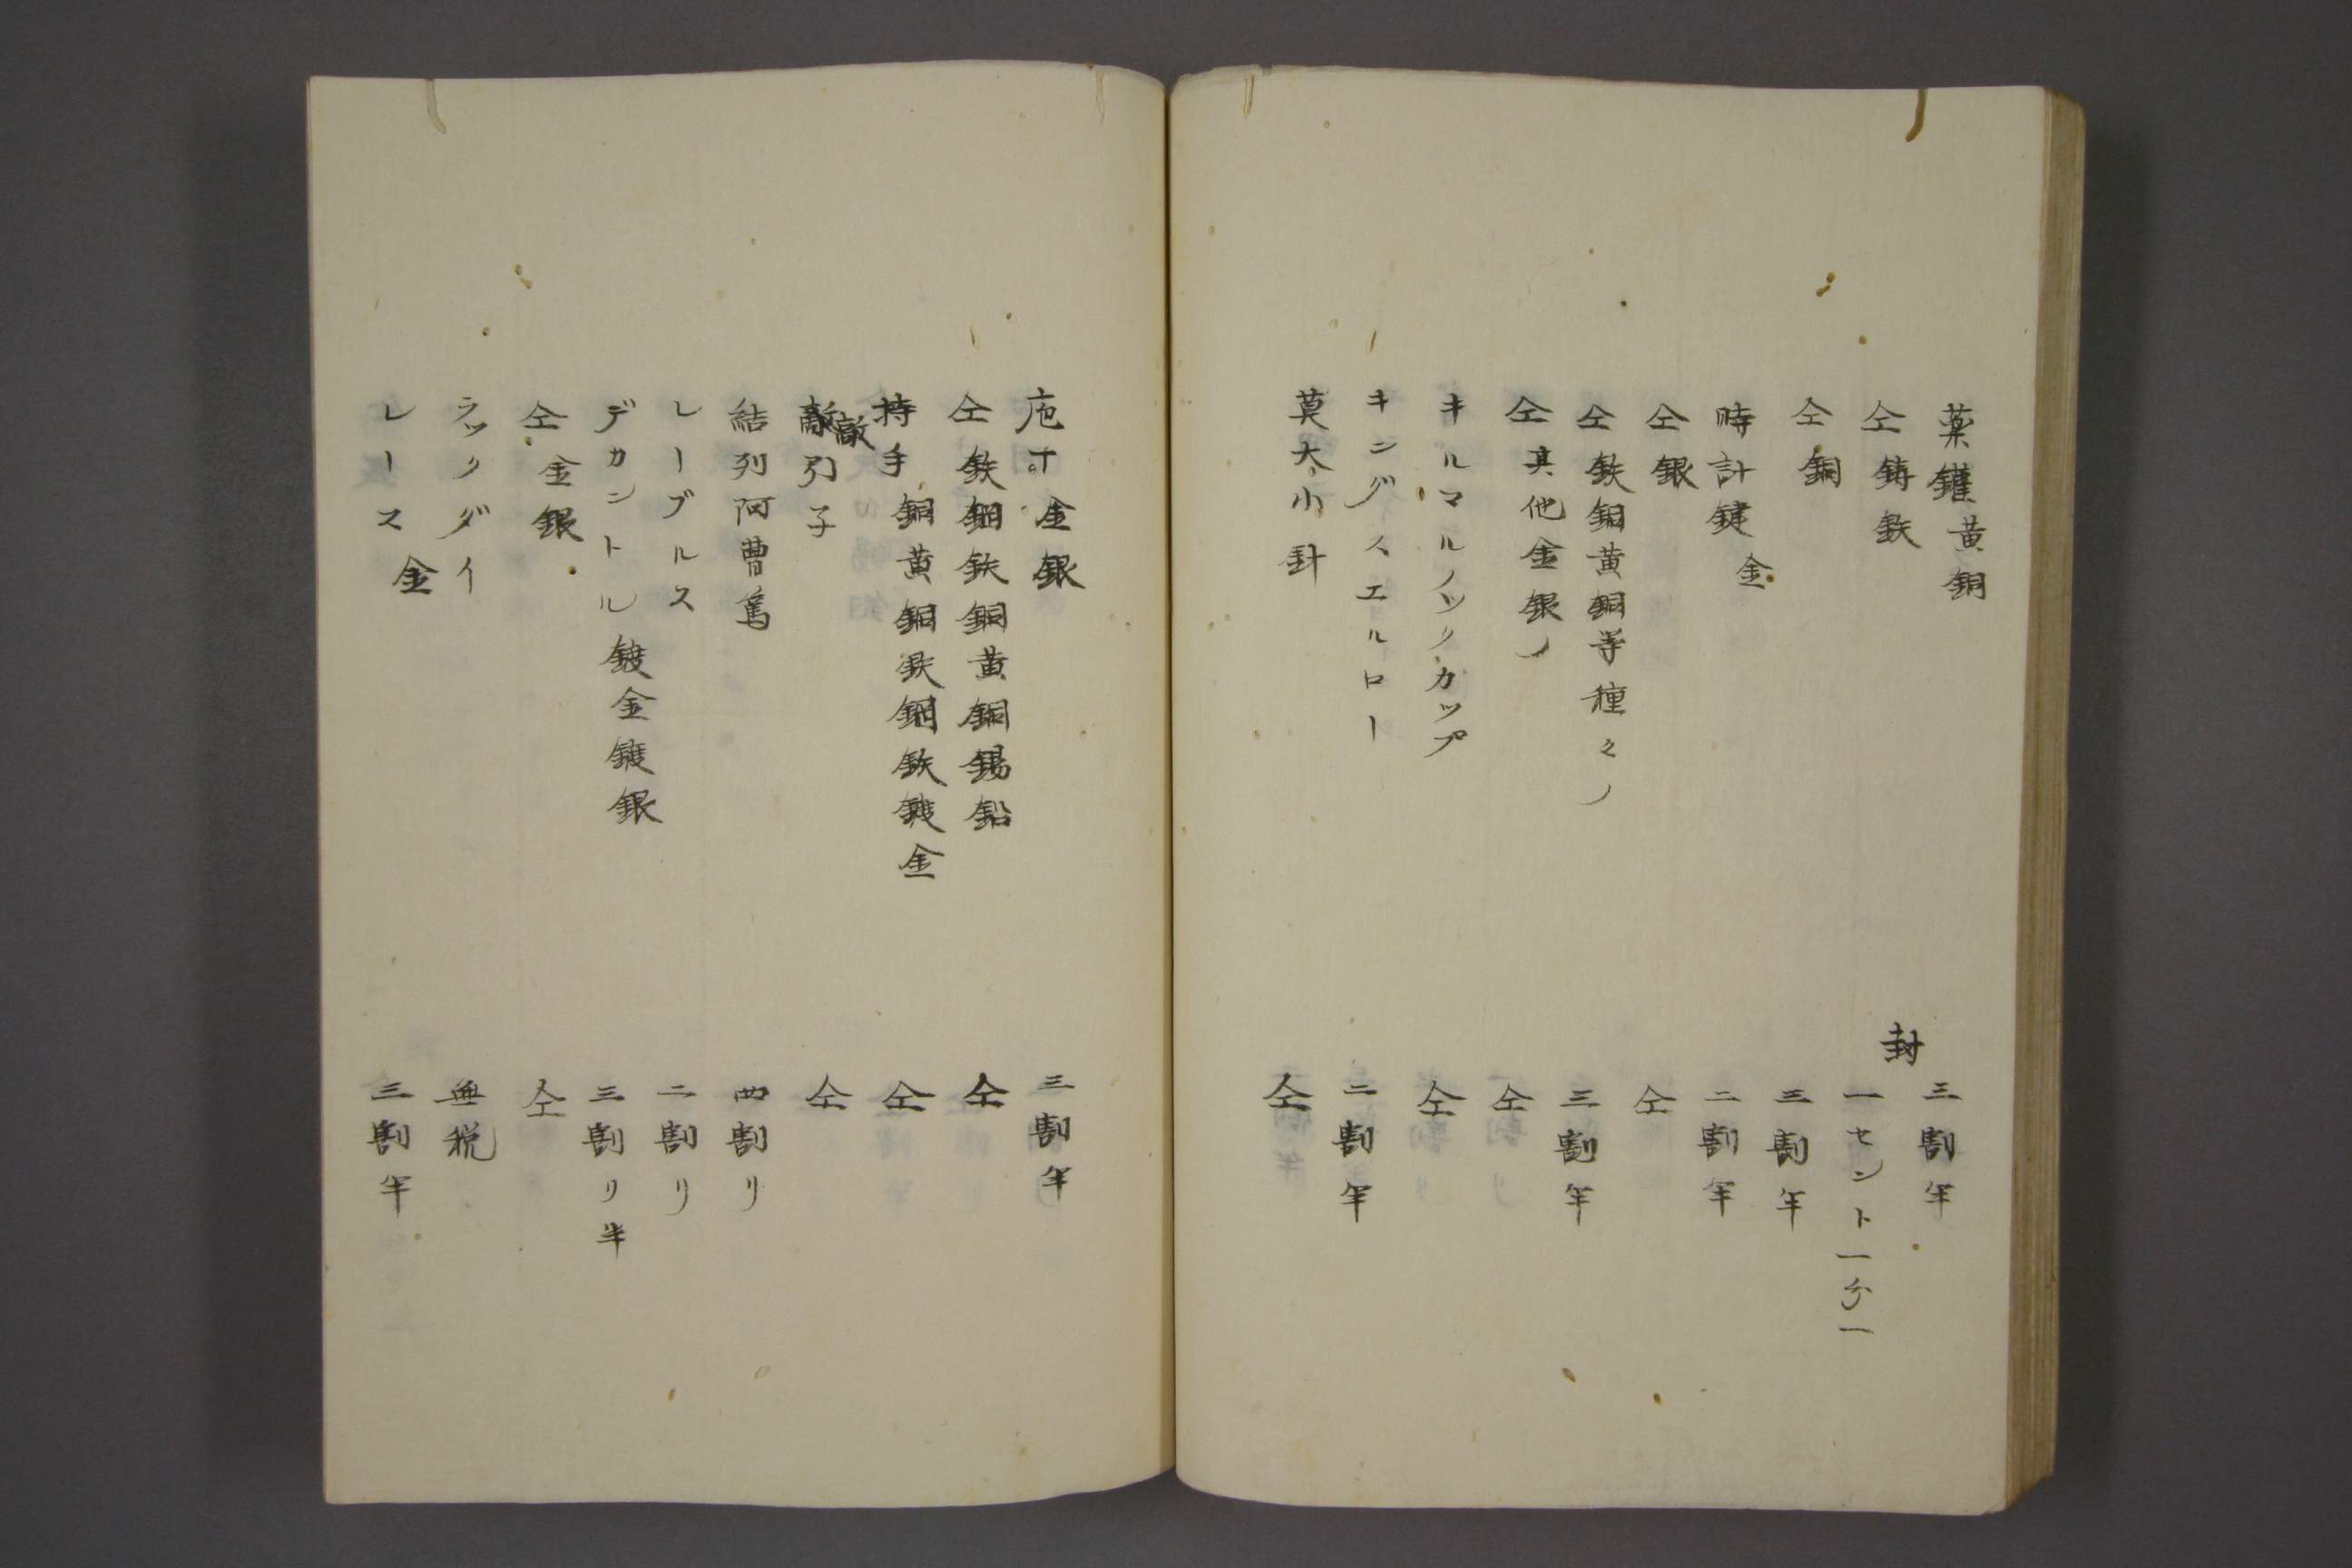 薬鑵黄銅　三割半
仝鋳鉄　封一セント一分一
仝銅　三割半
時計鍵　金　二割半
仝銀　仝
仝鉄銅黄銅等種々ノ　三割半
仝其他金銀ノ　仝
キルマルノックカップ　仝
キングスエルロー　二割半
莫大小針　仝
庖丁　金銀　三割半
仝鉄鋼鉄銅黄銅錫鉛　仝
持手　銅黄銅鉄鋼鉄鍍金　仝
敲引子　仝
敲
結列阿曹篤　四割リ
レーブルス　二割リ
デカントル鍍金鍍銀　三割リ半
仝　金銀　仝
ラックダイ　無税
レース　金　三割半